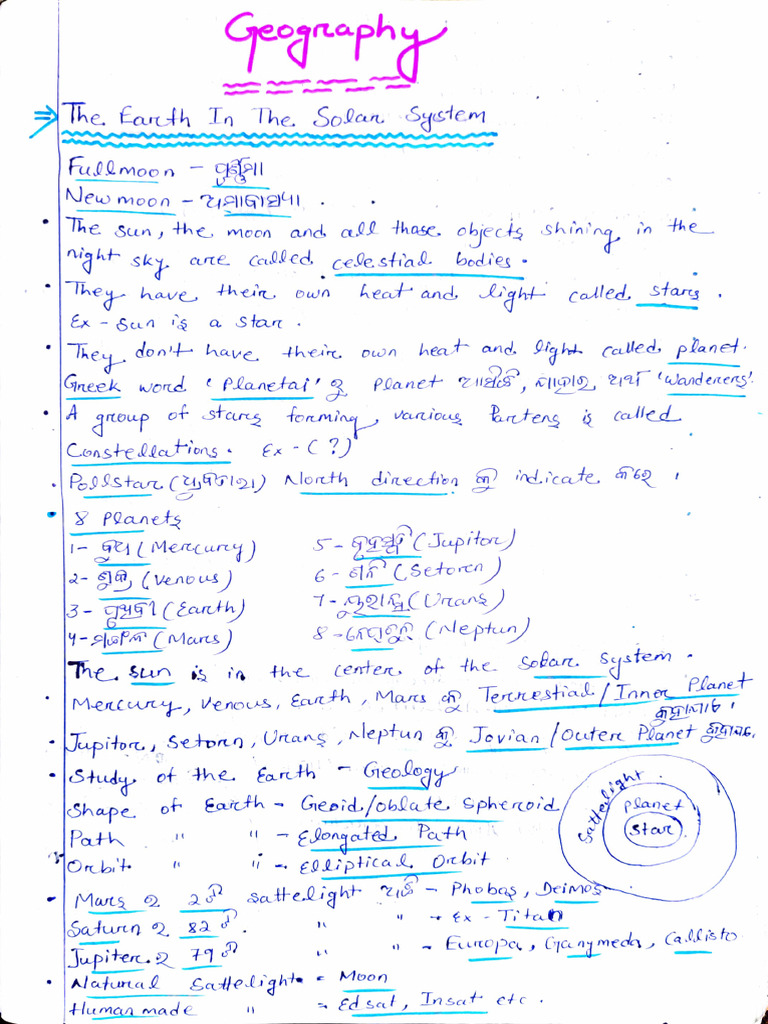 Geography
⇒ The Earth In The Solar System
Fullmoon - ପୂର୍ଣ୍ଣମା
New moon - ଅମାବାସ୍ୟା .
• The sun, the moon and all those objects shining in the
night sky are called celestial bodies.
• They have their own heat and light called stars.
Ex - Sun is a star.
• They don't have their own heat and light called planet.
Greek word 'Planetai' ରୁ Planet ଆସିଛି, ଯାହାର ଅର୍ଥ 'Wanderers'.
• A group of stars forming various Partens is called
Constellations. Ex - (?)
• Pollstar (ଧ୍ରୁବତାରା) North direction କୁ indicate କରେ ।
• 8 Planets
1 - ବୁଧ (Mercury)
2 - ଶୁକ୍ର (Venous)
3 - ପୃଥିବୀ (Earth)
4 - ମଙ୍ଗଳ (Mars)
5 - ବୃହସ୍ପତି (Jupitor)
6 - ଶନି (Setorn)
7 - ୟୁରାନସ (Urans)
8 - ନେପଚୁନ (Neptun)
The sun is in the center of the Solar System.
• Mercury, Venous, Earth, Mars କୁ Terrestial/Inner Planet
କୁହାଯାଏ ।
• Jupitor, Setorn, Urans, Neptun କୁ Jovian/Outer Planet କୁହାଯାଏ.
• Study of the Earth - Geology
Shape of Earth - Geoid/Oblate Spheroid
Path " " - Elongated Path
• Orbit " " - Elliptical Orbit
Sattelight
Planet
Star
• Mars ର 2ଟି Sattelight ଅଛି - Phobos, Deimos
Saturn ର 82ଟି " " - Ex - Titan
Jupiter ର 79ଟି " " - Europa, Ganymeda, Callisto
• Natural Sattelight = Moon
Human made " = Edsat, Insat etc.